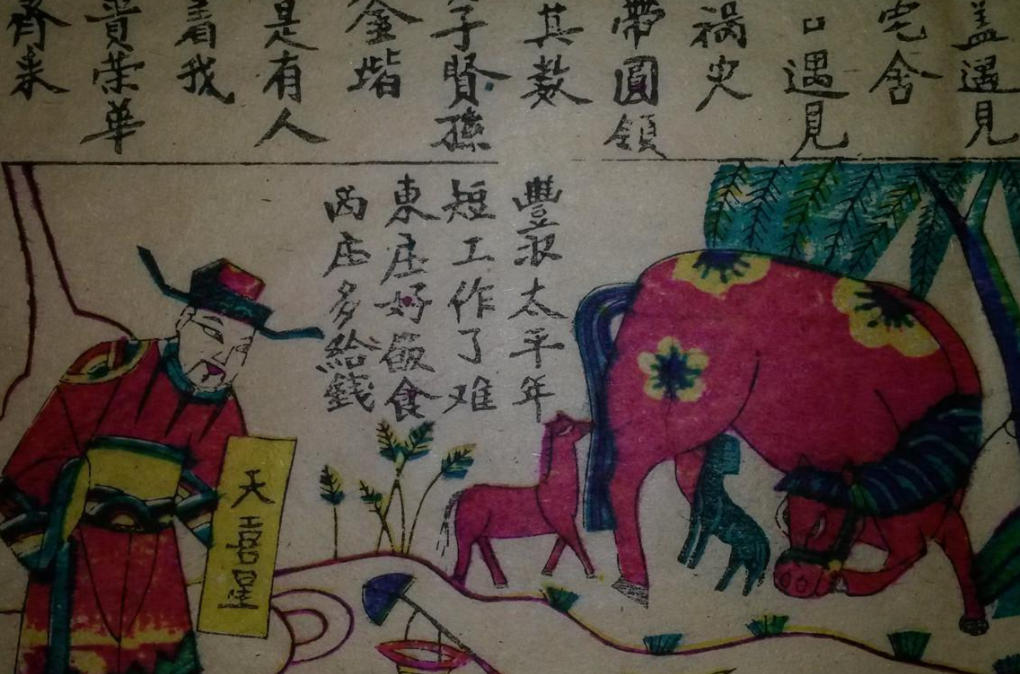 盖遇見
宅舍
口遇見
祸灾
帶圓領
其数
子賢孫
金堦
是有人
着我
貴荣華
齊来
豐收太平年
短工作了难
東庄好飯食
西庄多給錢
天喜星